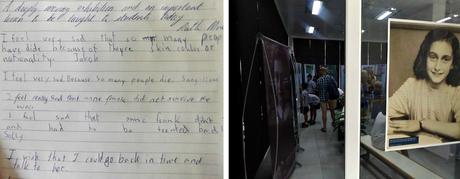 A deeply moving exhibition and an important
lesson to be taught to students today.
Ruth
I feel very sad that so many people
have dide because of theyre skin colour or
nationality. Jakob
I feel very sad because so many people die.
I feel really sad that anne frank did not survive the
war.
I feel sad that anne frank didnt
and had to be treated bad!
Sally
I wish that I could go back in time and
talk to her.